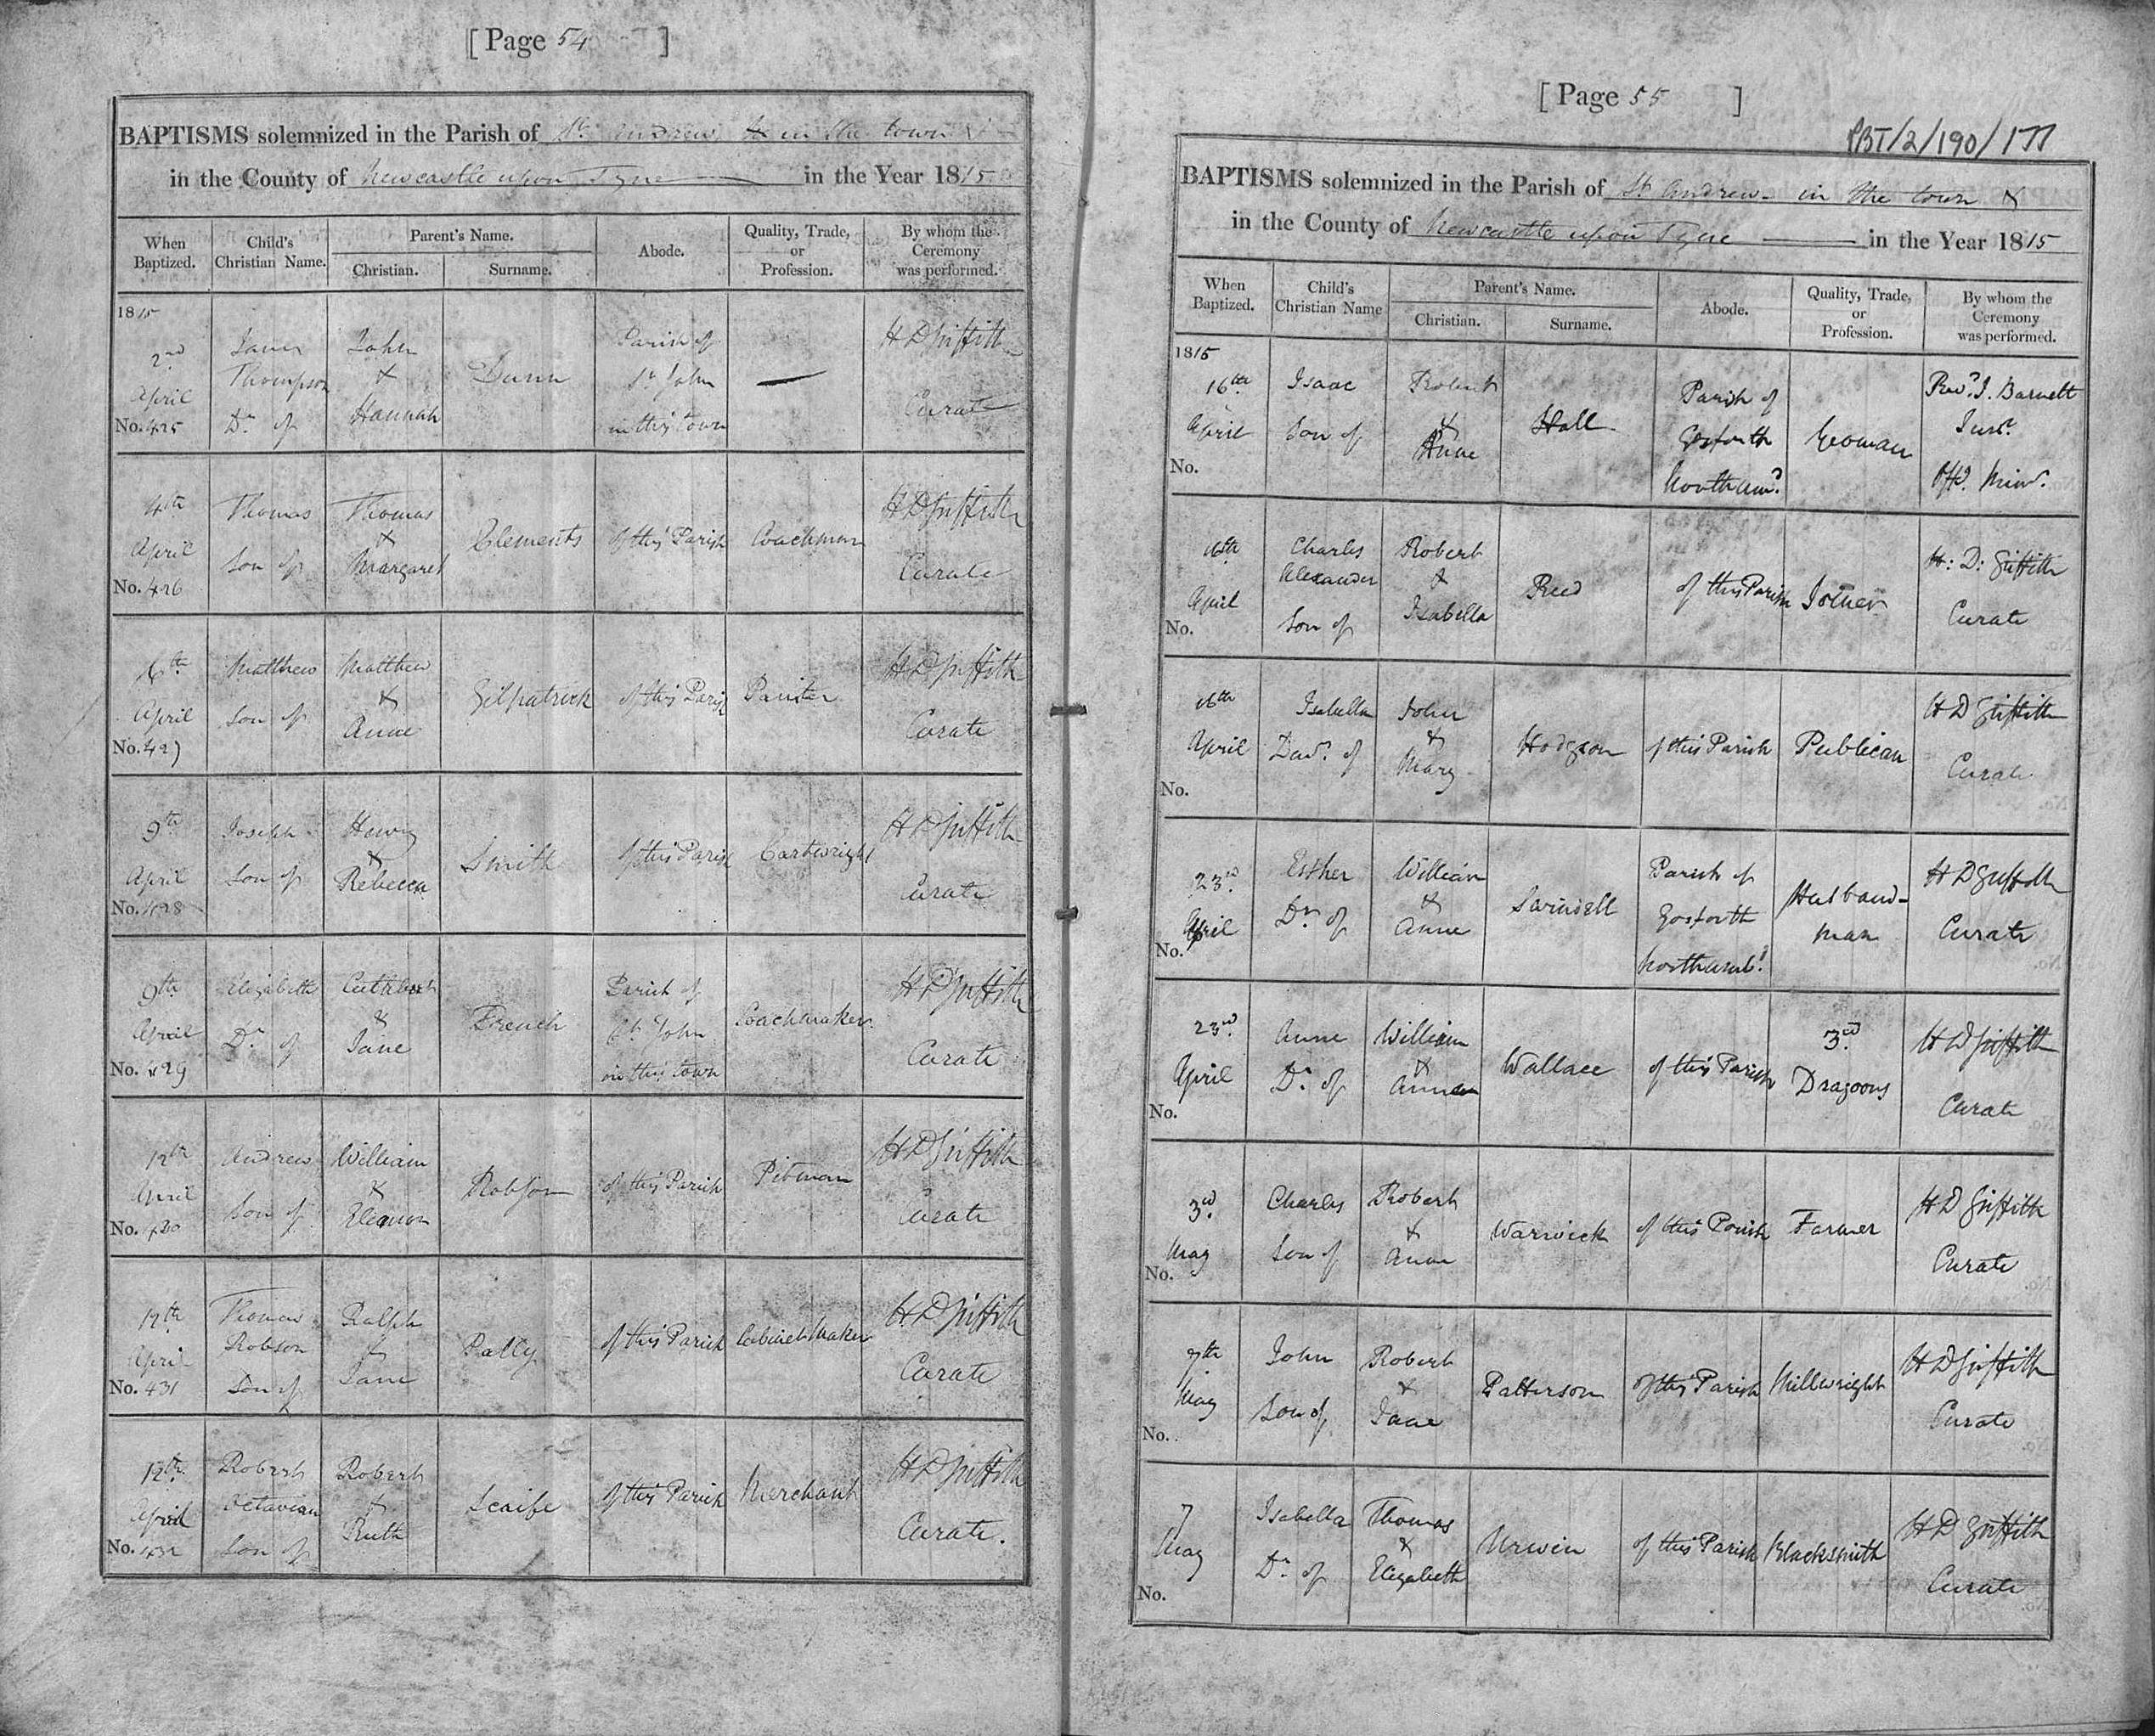 [ Page 54 ]
BAPTISMS solemnized in the Parish of St. Andrew in the town &
in the County of Newcastle upon Tyne in the Year 1815
When Baptized.
Child's Christian Name.
Parent's Name.
Christian.
Surname.
Abode.
Quality, Trade, or Profession.
By whom the Ceremony was performed.
1815
2nd
April
No. 425
Thompson
Dr. of
John
&
Hannah
Dunn
Parish of
St. John
in this town
—
H D Griffith
Curate
4th
April
No. 426
Thomas
Son of
Thomas
&
Margaret
Clements
of this Parish
Coachman
H D Griffith
Curate
6th
April
No. 427
Matthew
Son of
Matthew
&
Anne
Gilpatrick
of this Parish
Painter
H D Griffith
Curate
9th
April
No. 428
Joseph
Son of
Henry
&
Rebecca
Smith
of this Parish
Cartwright
H D Griffith
Curate
9th
April
No. 429
Elizabeth
Dr. of
Cuthbert
&
Jane
French
Parish of
St. John
in this town
Coachmaker
H D Griffith
Curate
12th
April
No. 430
Andrew
Son of
William
&
Eleanor
Robson
of this Parish
Pitman
H D Griffith
Curate
12th
April
No. 431
Thomas
Robson
Son of
Ralph
&
Jane
Pally
of this Parish
Cabinet Maker
H D Griffith
Curate
12th
April
No. 432
Robert
Octavian
Son of
Robert
&
Ruth
Scaife
of this Parish
Merchant
H D Griffith
Curate.
[ Page 55 ]
PBT/2/190/177
BAPTISMS solemnized in the Parish of St. Andrew in the town &
in the County of Newcastle upon Tyne in the Year 1815
When Baptized.
Child's Christian Name
Parent's Name.
Christian.
Surname.
Abode.
Quality, Trade, or Profession.
By whom the Ceremony was performed.
1815
16th
April
No.
Isaac
Son of
Robert
&
Anne
Hall
Parish of
Gosforth
Northumd.
Yeoman
Revd. J. Barnett
Offg. Minr.
16th
April
No.
Charles
Alexander
Son of
Robert
&
Isabella
Reed
of this Parish
Joiner
H: D: Griffith
Curate
16th
April
No.
Isabella
Daur. of
John
&
Mary
Hodgson
of this Parish
Publican
H D Griffith
Curate
23rd
April
No.
Esther
Dr. of
William
&
Anne
Parish of
Gosforth
Northumbd.
Husband-
man
H D Griffith
Curate
23rd
April
No.
Anne
Dr. of
William
&
Wallace
of this Parish
3rd
Dragoons
H D Griffith
Curate
3rd
May
No.
Charles
Son of
Robert
&
Anne
Warwick
of this Parish
Farmer
H D Griffith
Curate
7th
May
No.
John
Son of
Robert
&
Jane
Patterson
of this Parish
Millwright
H D Griffith
Curate
7
May
No.
Isabella
Dr. of
Thomas
&
Elizabeth
Urwin
of this Parish
Blacksmith
H D Griffith
Curate